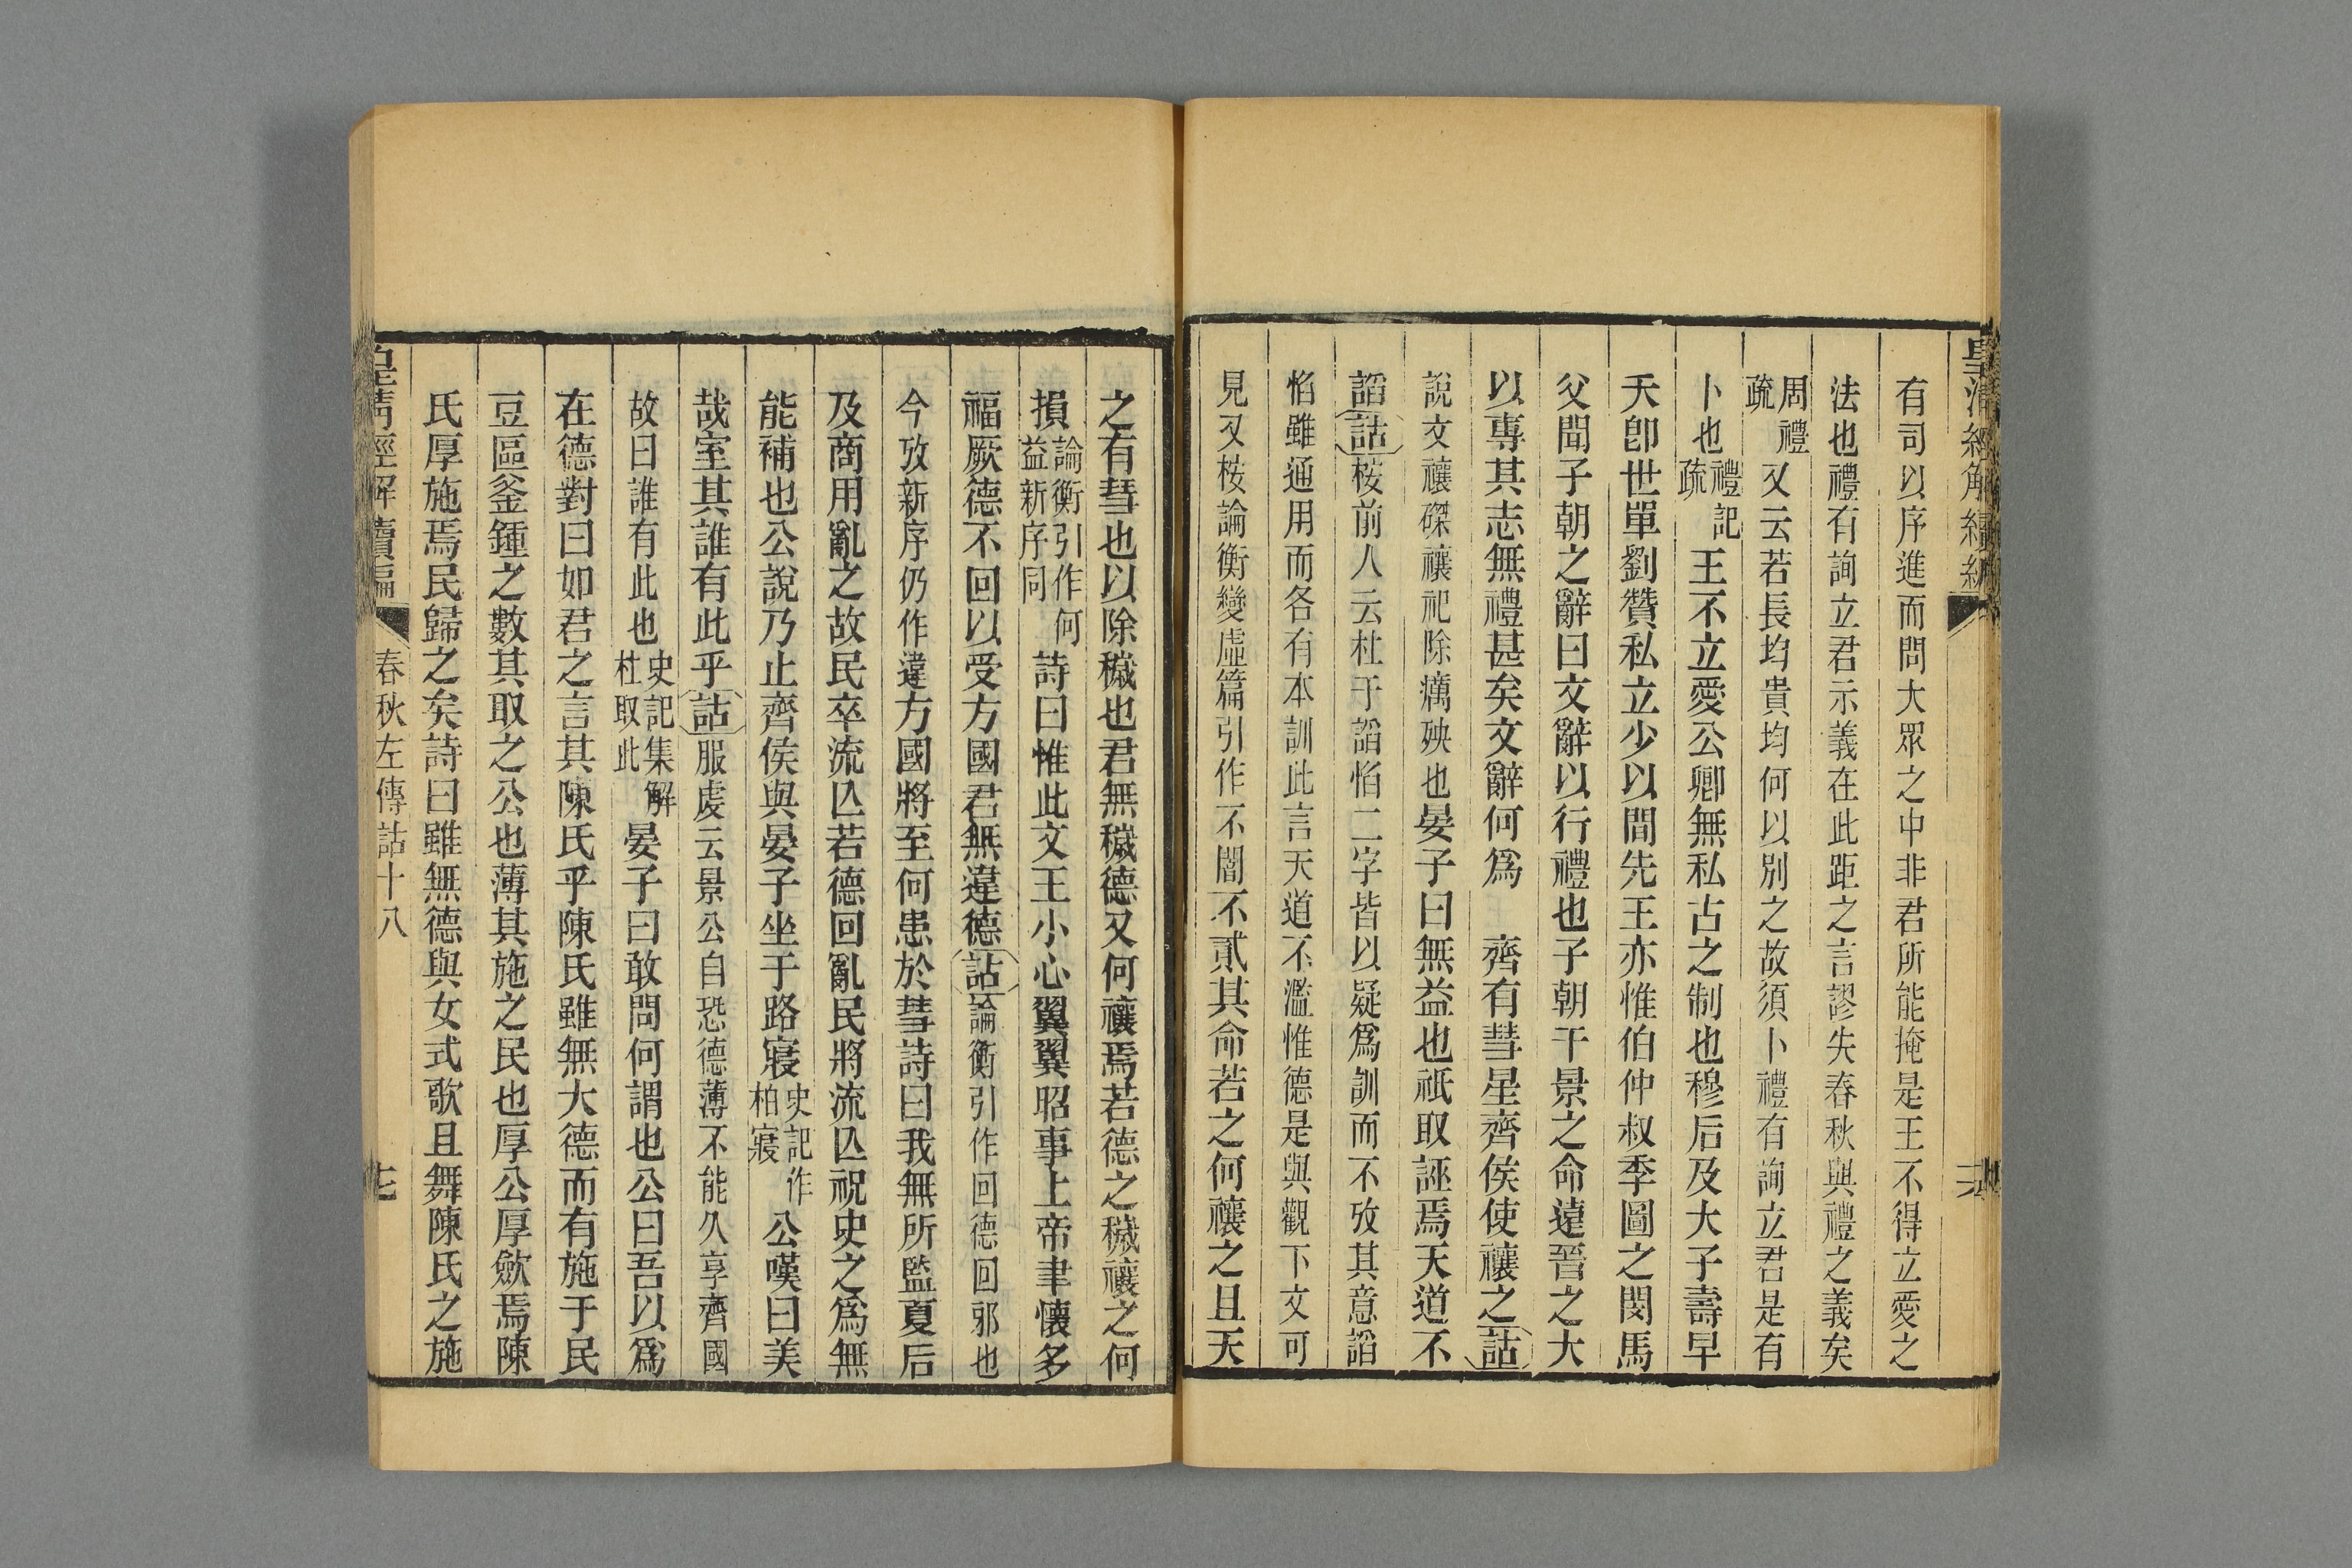 皇清經解續編
有司以序進而問大眾之中非君所能掩是王不得立愛之
法也禮有詢立君示義在此距之言謬失春秋與禮之義矣
周禮疏又云若長均貴均何以別之故須卜禮有詢立君是有
卜也禮記疏王不立愛公卿無私古之制也穆后及大子壽早
夭卽世單劉贊私立少以間先王亦惟伯仲叔季圖之閔馬
父聞子朝之辭曰文辭以行禮也子朝干景之命遠晉之大
以專其志無禮甚矣文辭何爲　齊有彗星齊侯使禳之詁
說文禳磔禳祀除癘殃也晏子曰無益也祇取誣焉天道不
謟詁桉前人云杜于謟慆二字皆以疑爲訓而不攷其意謟
慆雖通用而各有本訓此言天道不濫惟德是與觀下文可
見又桉論衡變虛篇引作不闇不貳其命若之何禳之且天
之有彗也以除穢也君無穢德又何禳焉若德之穢禳之何
損論衡引作何益新序同詩曰惟此文王小心翼翼昭事上帝聿懷多
福厥德不回以受方國君無違德詁論衡引作回德回邪也
今攷新序仍作違方國將至何患於彗詩曰我無所監夏后
及商用亂之故民卒流亾若德回亂民將流亾祝史之爲無
能補也公說乃止齊侯與晏子坐于路寢史記作柏寢公嘆曰美
哉室其誰有此乎詁服虔云景公自恐德薄不能久享齊國
故曰誰有此也史記集解杜取此晏子曰敢問何謂也公曰吾以爲
在德對曰如君之言其陳氏乎陳氏雖無大德而有施于民
豆區釜鍾之數其取之公也薄其施之民也厚公厚歛焉陳
氏厚施焉民歸之矣詩曰雖無德與女式歌且舞陳氏之施
皇清經解續編　春秋左傳詁十八